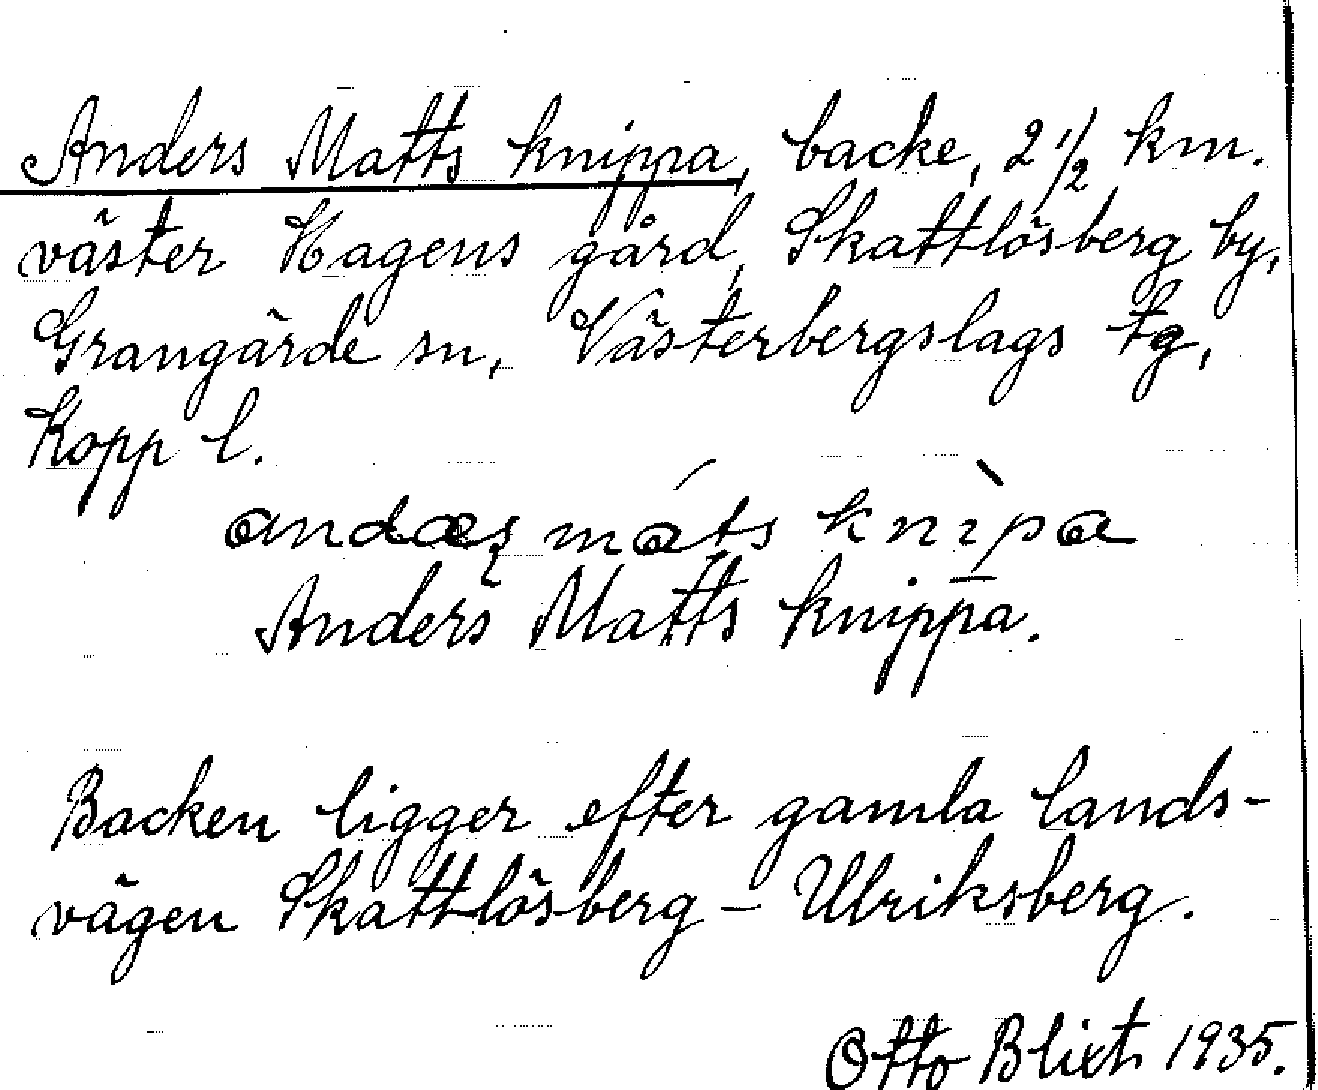 Anders Matts knippa, backe, 2 1/2 km.
väster Hagens gård, Skattlösberg by,
Grangärde sn, Västerbergslags tg,
Kopp l.
andæʂ máts knìpa
Anders Matts knippa.
Backen ligger efter gamla lands-
vägen Skattlösberg – Ulriksberg.
Otto Blixt 1935.